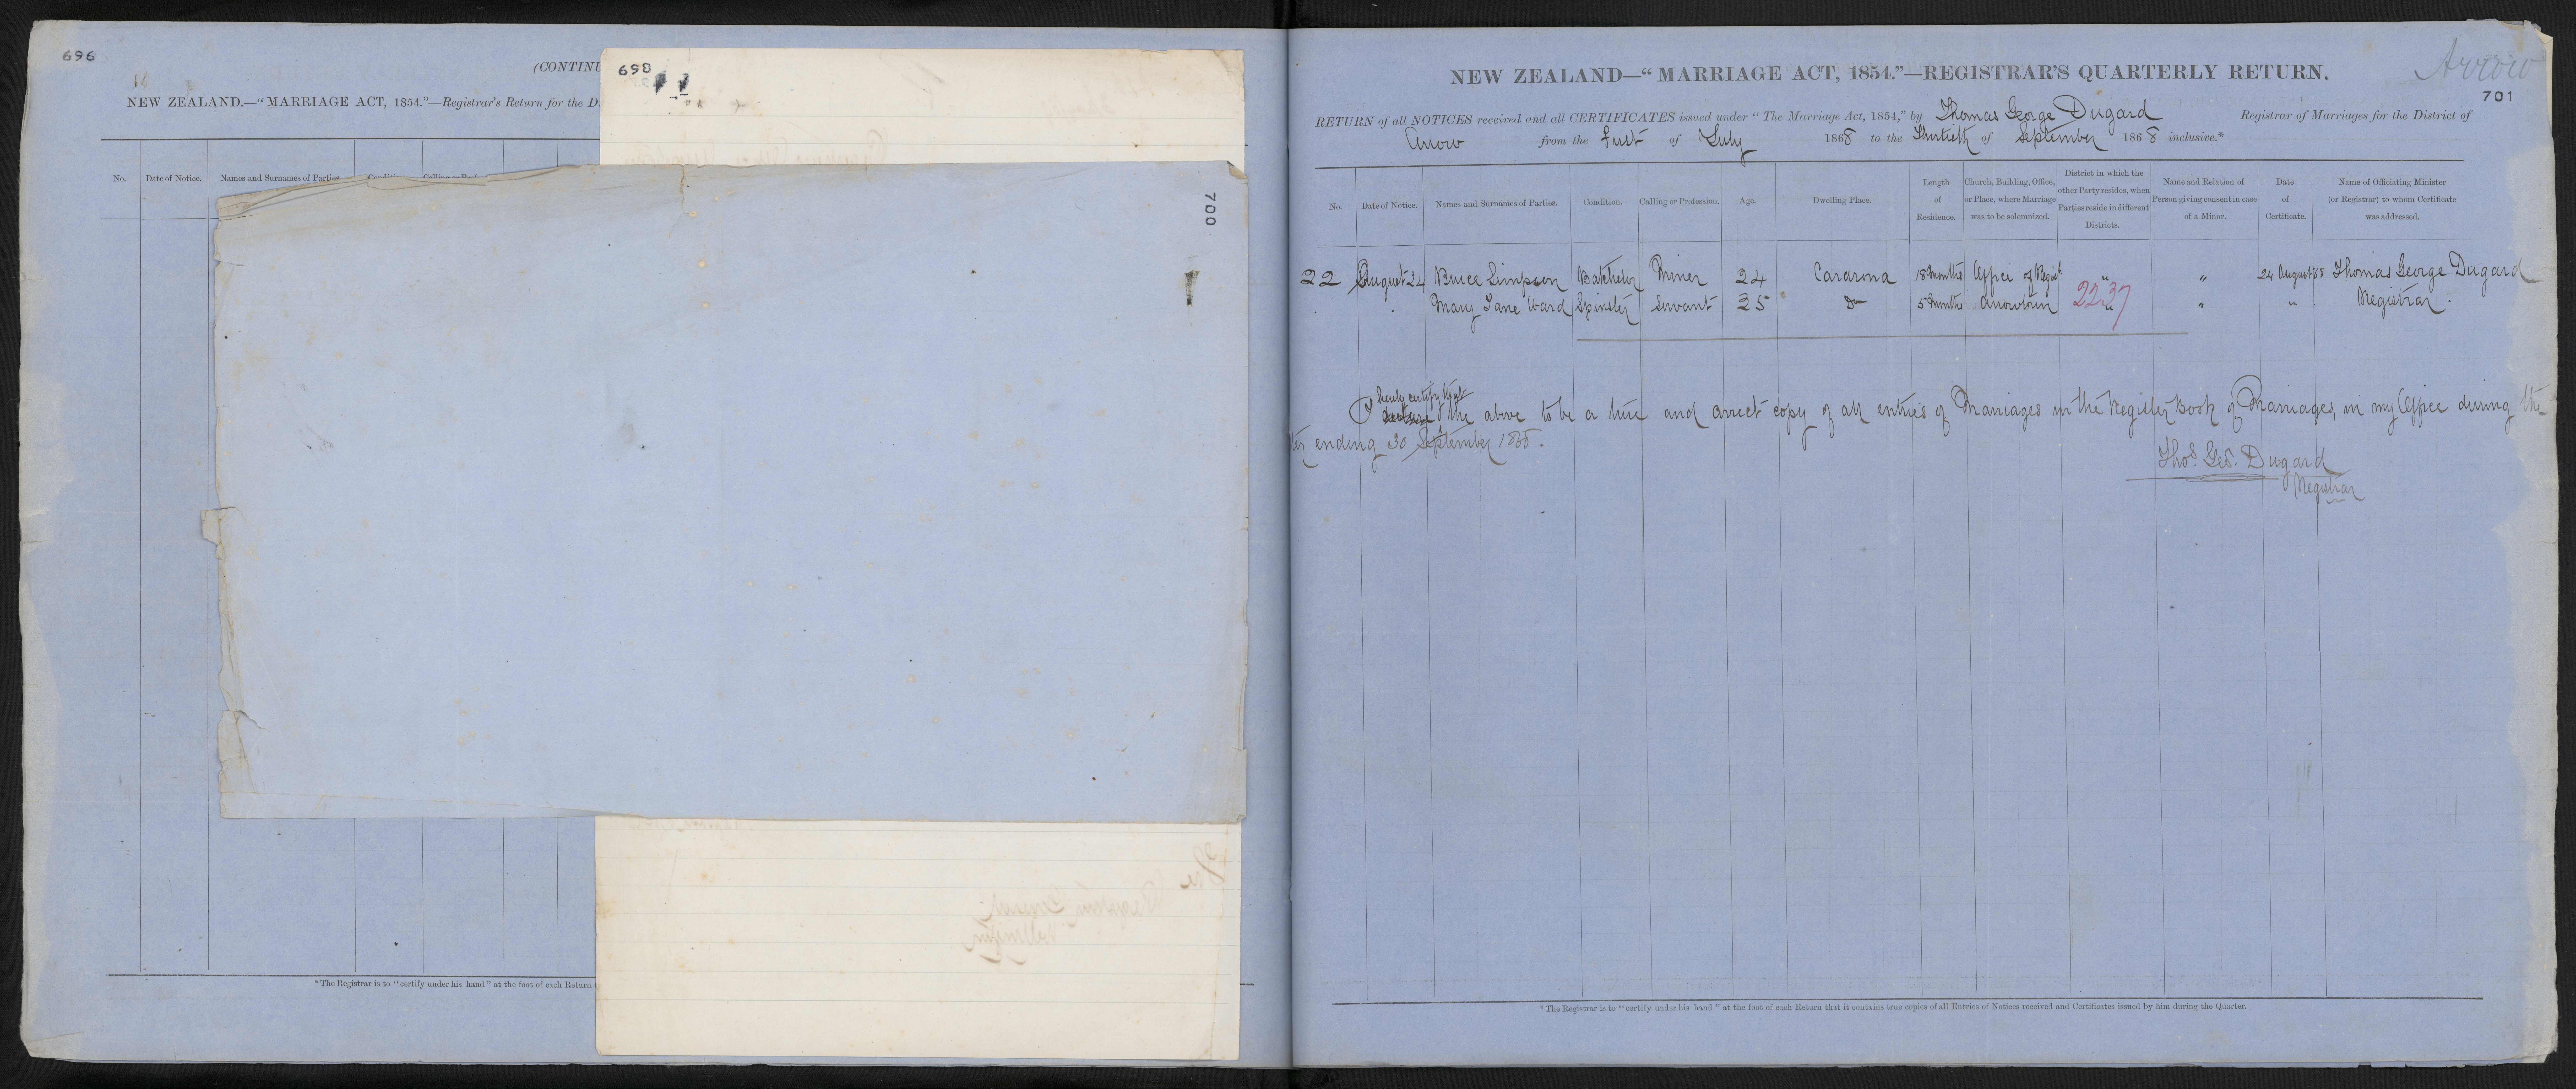 696
(CONTINU
NEW ZEALAND.—"MARRIAGE ACT, 1854."—Registrar's Return for the D
No. Date of Notice. Names and Surnames of Parties
698
700
* The Registrar is to "certify under his hand" at the foot of each Return
Arrow
NEW ZEALAND—"MARRIAGE ACT, 1854."—REGISTRAR'S QUARTERLY RETURN.
701
RETURN of all NOTICES received and all CERTIFICATES issued under "The Marriage Act, 1854," by Thomas George Dugard Registrar of Marriages for the District of
Arrow from the first of July 1868 to the Thirtieth of September 1868 inclusive.*
No. Date of Notice. Names and Surnames of Parties. Condition. Calling or Profession. Age. Dwelling Place. Length of Residence. Church, Building, Office, or Place, where Marriage was to be solemnized. District in which the other Party resides, when Parties reside in different Districts. Name and Relation of Person giving consent in case of a Minor. Date of Certificate. Name of Officiating Minister (or Registrar) to whom Certificate was addressed.
22 August 24 Bruce Simpson Batchelor Miner 24 Cardrona 18 months Office of Regist " " 24 August 68 Thomas George Dugard
Mary Jane Ward Spinster Servant 25 Do 5 months Arrowtown 2237 " " " Registrar.
hereby certify that
I the above to be a true and correct copy of all entries of Marriages in the Register Book of Marriages, in my Office during the
ter ending 30 September 1868.
Thos. Geo. Dugard
Registrar
* The Registrar is to "certify under his hand" at the foot of each Return that it contains true copies of all Entries of Notices received and Certificates issued by him during the Quarter.